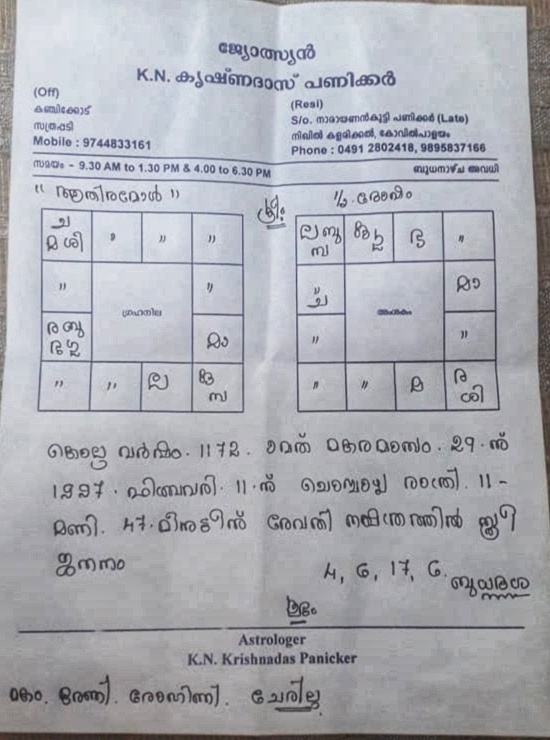 ജ്യോത്സ്യൻ
K.N. കൃഷ്ണദാസ് പണിക്കർ
(Off)
കഞ്ചിക്കോട്
സത്രപ്പടി
Mobile : 9744833161
(Resi)
S/o. നാരായണൻകുട്ടി പണിക്കർ (Late)
നിഖിൽ കളരിക്കൽ, കോവിൽപാളയം
Phone : 0491 2802418, 9895837166
സമയം - 9.30 AM to 1.30 PM & 4.00 to 6.30 PM
ബുധനാഴ്ച അവധി
" ആതിരമോൾ "
ശ്രീഃ
ച
മ ശി " " "
" ഗ്രഹനില "
ര ബു
മാ
" " ല
സ
ല ബു
സ "
ച അംശകം മാ
" "
" " മ ര
ശി
കൊല്ല വർഷം. 1172. മകരമാസം. 29.ന്
1997. ഫിബ്രവരി. 11.ന് ചൊവ്വാഴ്ച രാത്രി. 11-
മണി. 47. മിനുട്ടിന് രേവതി നക്ഷത്രത്തിൽ സ്ത്രീ
ജനനം
4, 6, 17, 6. ബുധദശ
ശുഭം
Astrologer
K.N. Krishnadas Panicker
മകം. ഭരണി. രോഹിണി. ചേരില്ല